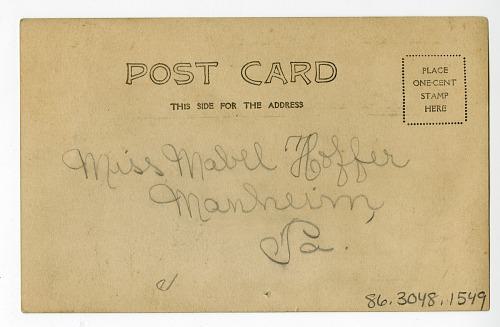 POST CARD
THIS SIDE FOR THE ADDRESS
PLACE
ONE-CENT
STAMP
HERE
Miss Mabel Hoffer
Manheim,
Pa.
86.3048.1549